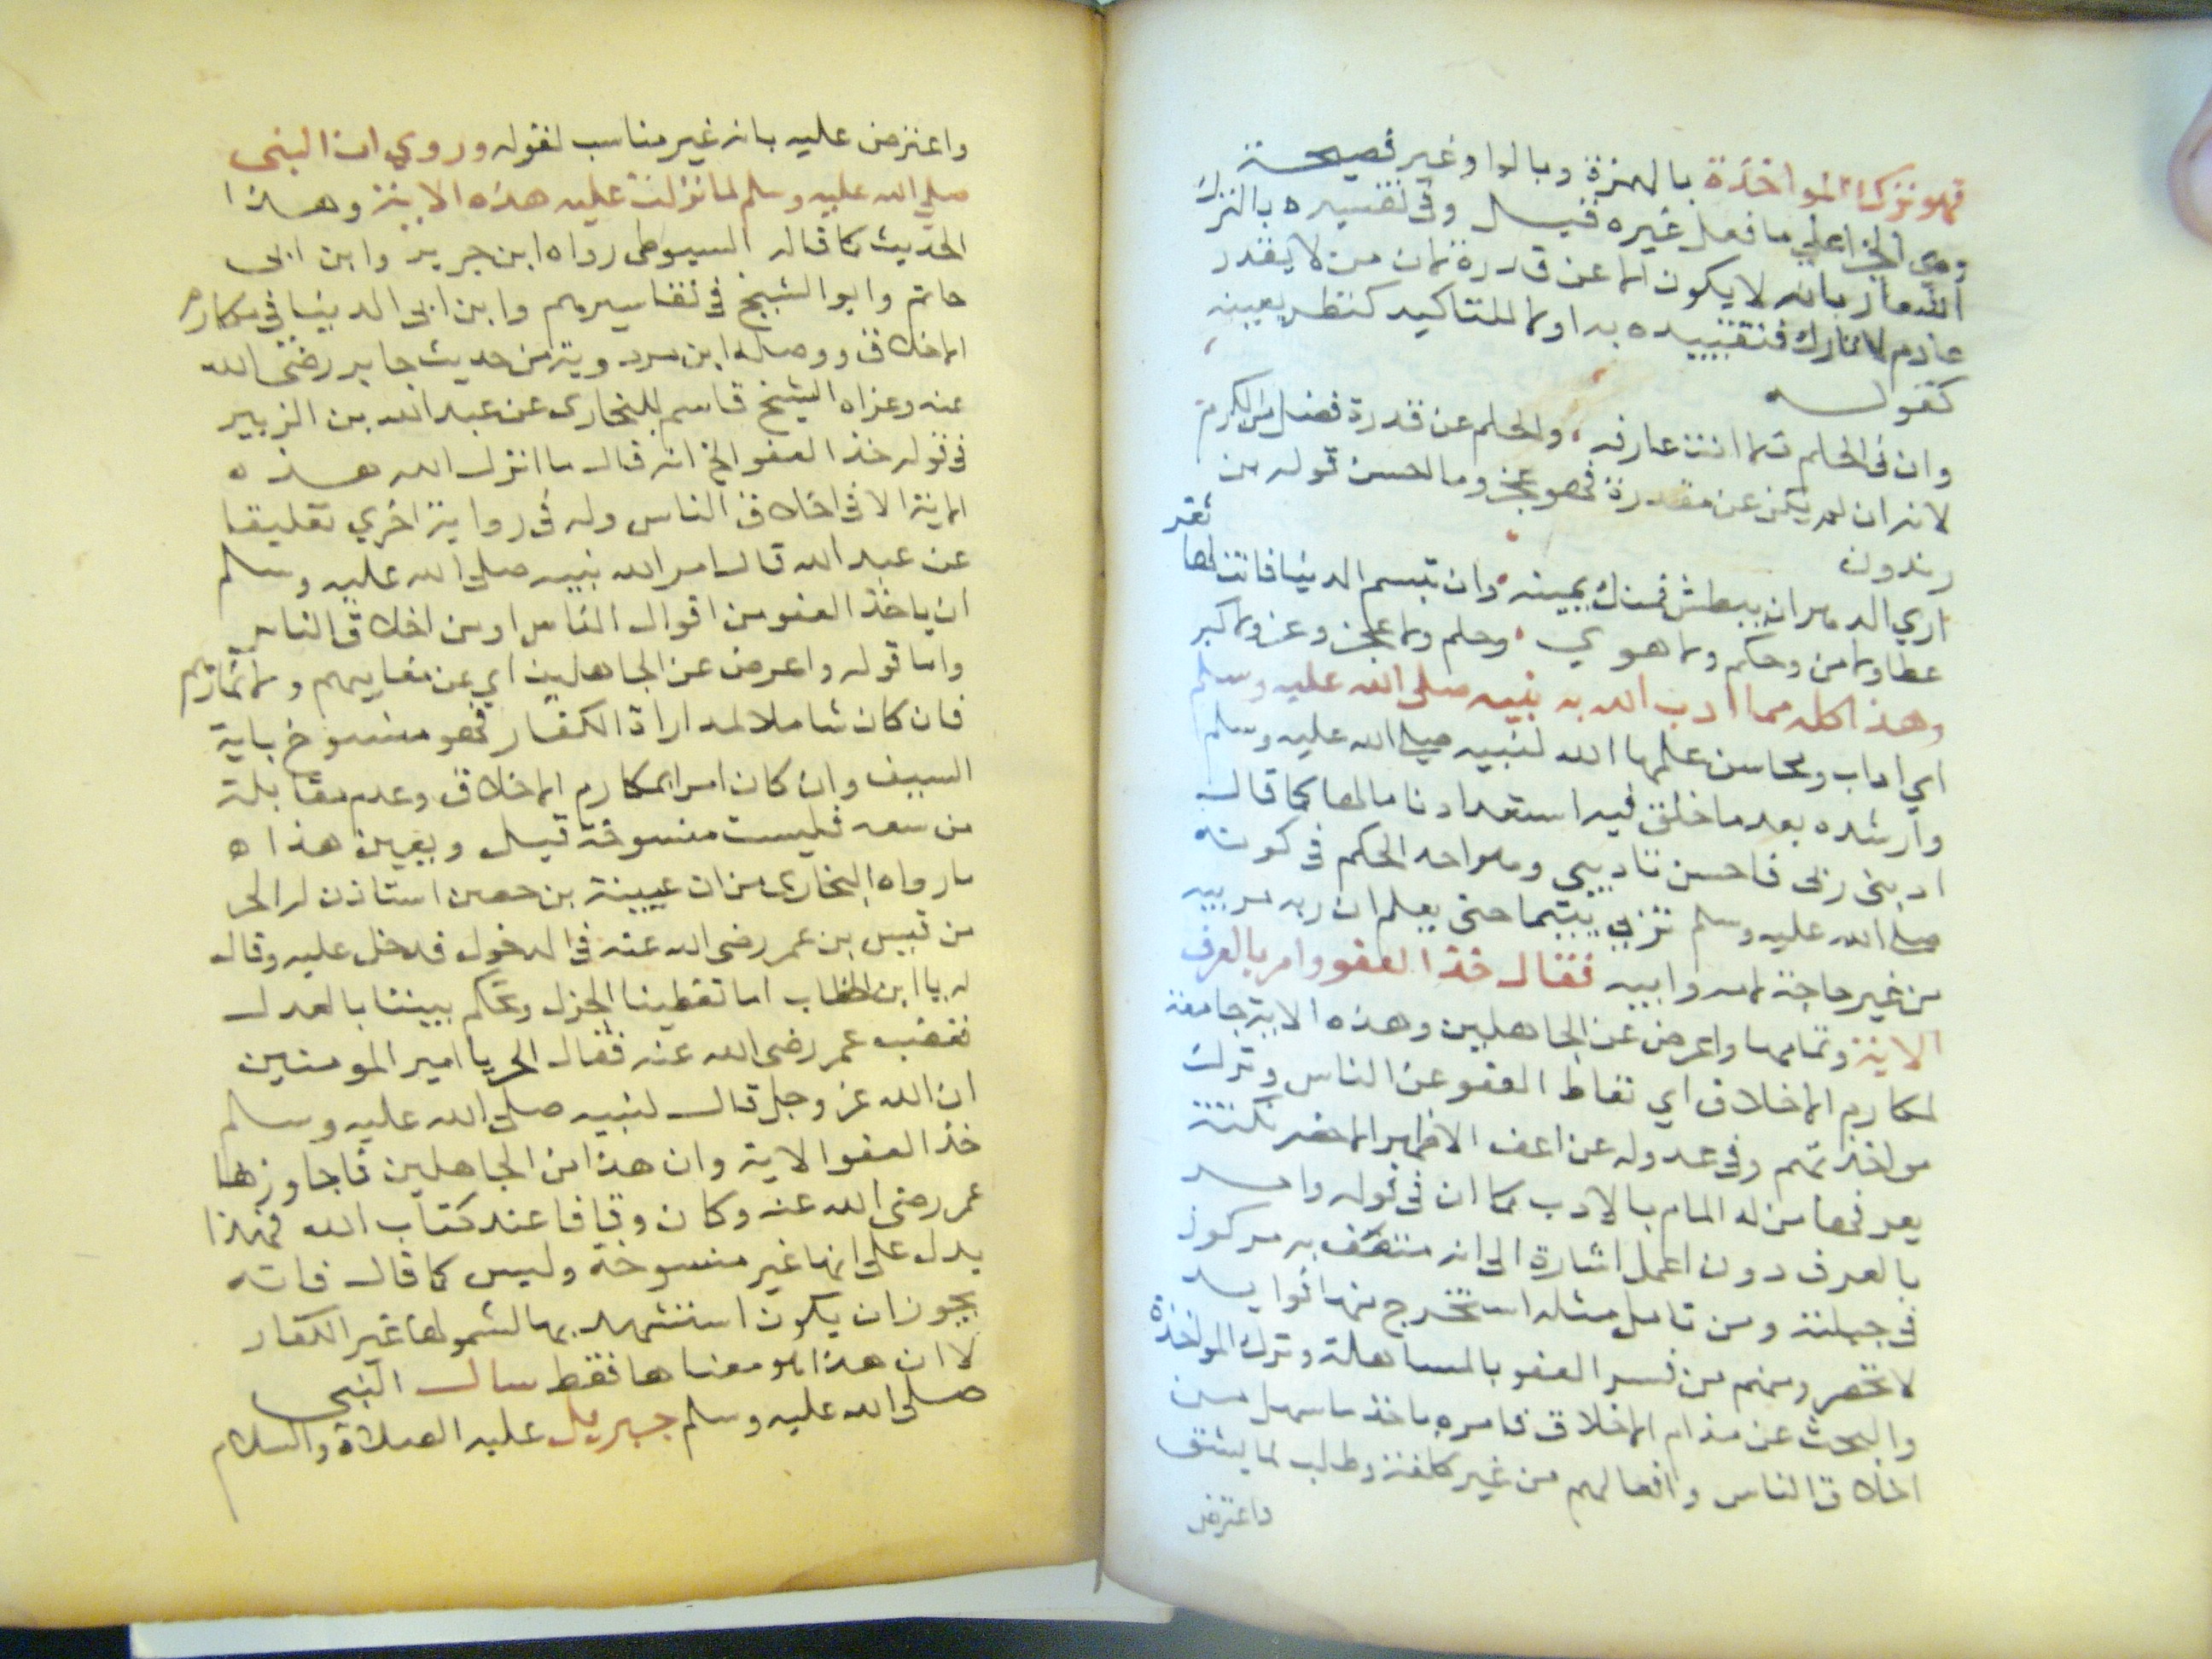 فهو ترك المواخذة بالهمزة وبالواو غير فصيحة
وهي الجزا علي ما فعل غيره فقيل وفي تفسيره بالترك
اشعار بانه لا يكون الا عن قدرة لان من لا يقدر
عادم لا تارك فتقييده به اولا للتاكيد كنظر بعينه
كقوله
وان في الحلم ما انت عارفه والحلم عن قدرة فضل من الكرم
لانه ان لم يكن عن مقدرة فهو عجز وما احسن قوله من
زيدون
اري الدهر ان يبطش فمنك يمينه وان تبسم الدنيا فانت لها ثغر
عطا ولا من وحكم ولا هوي وحلم ولا عجز وعز ولا كبر
وهذا كله مما ادب الله به نبيه صلى الله عليه وسلم
اي اداب ومحاسن علمها الله لنبيه صلى الله عليه وسلم
وارشده بعد ما خلق فيه استعدادنا مالها كما قال
ادبني ربي فاحسن تاديبي وهو احد الحكم في كونه
صلى الله عليه وسلم تربي يتيما حتى يعلم ان ربه مربيه
من غير حاجة لامه وابيه فقال خذ العفو وامر بالعرف
الاية وتمامها واعرض عن الجاهلين وهذه الاية جامعة
لمكارم الاخلاق اي تعاط العفو عن الناس وترك
مواخذتهم وفي عدوله عن اعف الاظهر الاخصر نكتة
يعرفها من له المام بالادب كما ان في قوله وامر
بالعرف دون اعمل اشارة الى انه متصف به مركوز
في جبلته ومن تامل مثله استخرج منه افوايد
لا تحصر ومنهم من فسر العفو بالمساهلة وترك المواخذة
والبحث عن مذام الاخلاق فامره باخذ ما سهل من
اخلاق الناس وافعالهم من غير كلفة وطلب لما يشق
واعترض
واعترض عليه بانه غير مناسب لقوله وروي ان النبي
صلى الله عليه وسلم لما نزلت عليه هذه الاية وهذا
الحديث كما قاله السيوطي رواه ابن جرير وابن ابي
حاتم وابو الشيخ في تفاسيرهم وابن ابي الدنيا في مكارم
الاخلاق ووصله ابن مردويه من حديث جابر رضي الله
عنه وعزاه الشيخ قاسم للبخاري عن عبد الله بن الزبير
في قوله خذ العفو الخ انه قال ما انزل الله هذه
الاية الا في اخلاق الناس وله في رواية اخري تعليقا
عن عبد الله قال امر الله نبيه صلى الله عليه وسلم
ان ياخذ العفو من اقوال الناس او من اخلاق الناس
واما قوله واعرض عن الجاهلين اي عن معايبهم ولا تمارهم
فان كان شاملا لمداراة الكفار فهو منسوخ باية
السيف وان كان امرا بمكارم الاخلاق وعدم مقابلة
من سفه فليست منسوخة قيل ويعين هذا ه
ما رواه البخاري من ان عيينة بن حصن استاذن له الحر
من قيس بن عمر رضي الله عنه في الدخول فدخل عليه وقال
له يا ابن الخطاب اما تعطينا الجزل وتحكم بيننا بالعدل
فغضب عمر رضي الله عنه فقال الحر يا امير المومنين
ان الله عز وجل قال لنبيه صلى الله عليه وسلم
خذ العفو الاية وان هذا من الجاهلين فما جاوزها
عمر رضي الله عنه وكان وقافا عند كتاب الله فهذا
يدل على انها غير منسوخة وليس كما قال فانه
يجوز ان يكون استشهد بها لشمولها غير الكفار
لا ان هذا هو معناها فقط سال النبي
صلى الله عليه وسلم جبريل عليه الصلاة والسلام